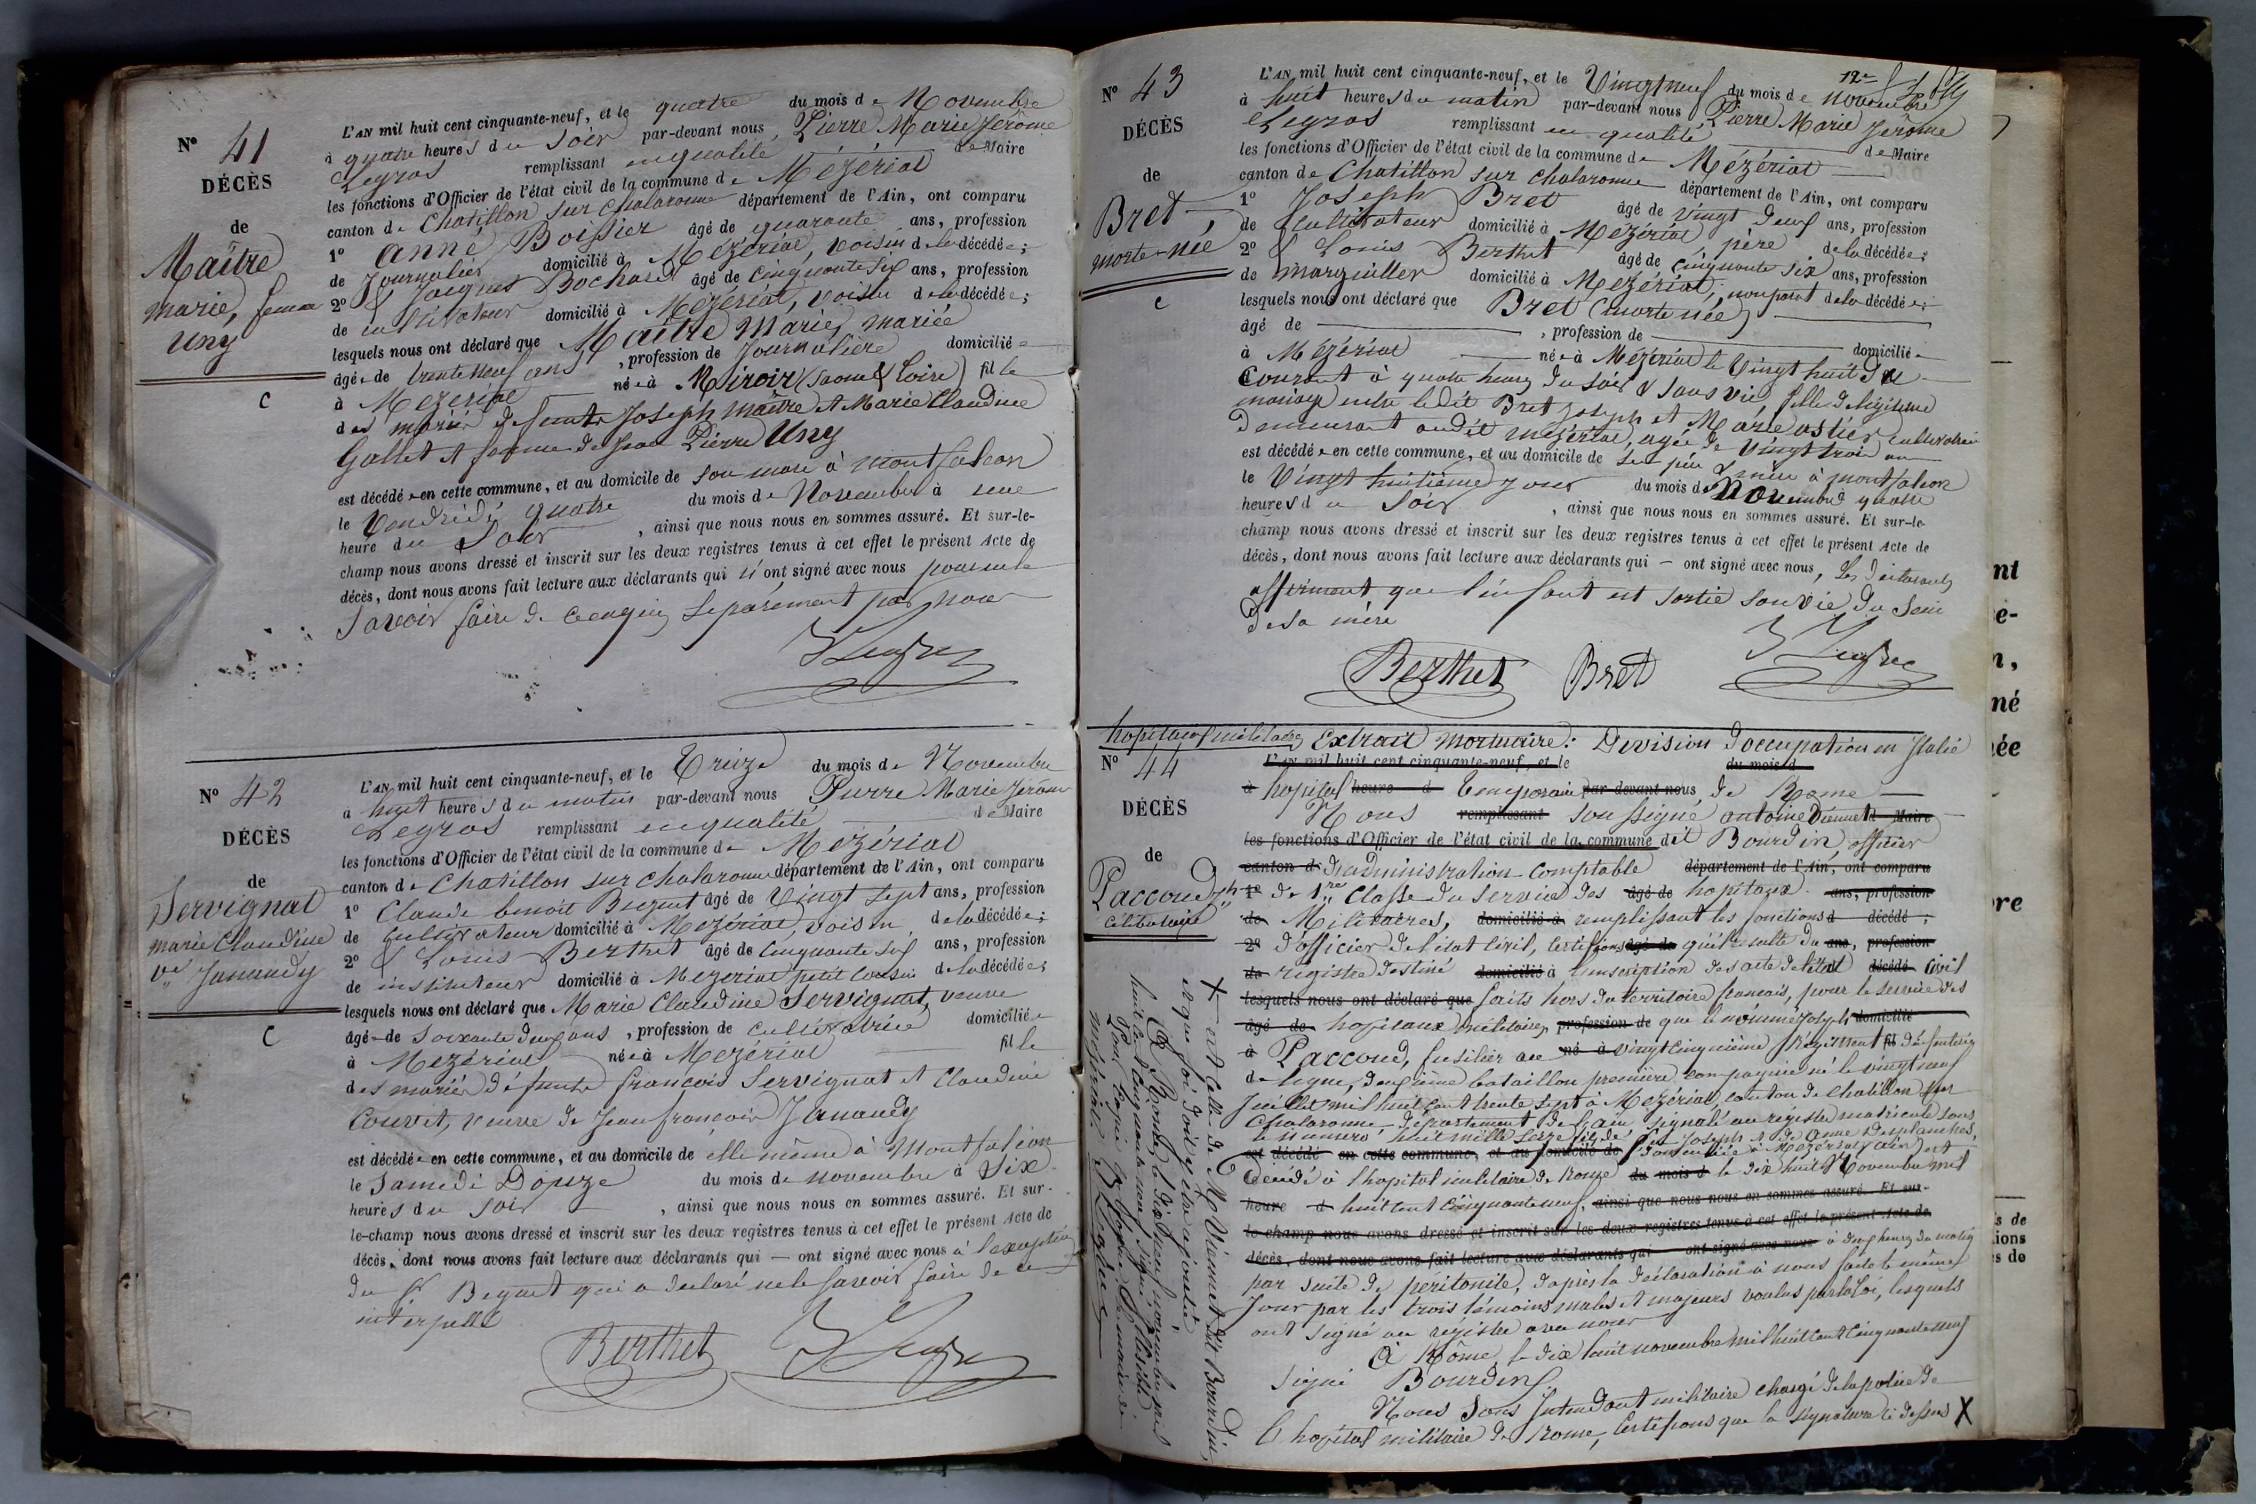 N° 41
DÉCÈS
de
Maître
marie, femme
Uny
C
L'AN mil huit cent cinquante-neuf, et le quatre du mois de Novembre
à quatre heures du soir par-devant nous, Pierre Marie Jérôme
Legros remplissant en qualité de Maire
les fonctions d'Officier de l'état civil de la commune de Mézériat
canton de Chatillon sur Chalaronne département de l'Ain, ont comparu
1° anné Boissier âgé de quarante ans, profession
de Journalier domicilié à Mézériat, voisin de la décédée;
2° & Jacques Bochard âgé de cinquante six ans, profession
de cultivateur domicilié à Mézériat, voisin de la décédée;
lesquels nous ont déclaré que Maître Marie, mariée
âgée de trente neuf ans, profession de Journalière domiciliée
à Mézériat née à Miroir (Saone & Loire) fille
des mariés defunts Joseph Maître et Marie Claudine
Gallet et femme de Jean Pierre Uny
est décédée en cette commune, et au domicile de son mari à Montfalcon
le Vendredi quatre du mois de Novembre à une
heure du Soir, ainsi que nous nous en sommes assuré. Et sur-le-
champ nous avons dressé et inscrit sur les deux registres tenus à cet effet le présent Acte de
décès, dont nous avons fait lecture aux déclarants qui n'ont signé avec nous pour ne le
savoir faire de ce enquis séparément par nous
N° 42
DÉCÈS
de
Servignat
marie Claudine
Ve Janaudy
C
L'AN mil huit cent cinquante-neuf, et le Treize du mois de Novembre
à huit heures du matin par-devant nous Pierre Marie Jérôme
Legros remplissant en qualité de Maire
les fonctions d'Officier de l'état civil de la commune de Mézériat
canton de Chatillon sur Chalaronne département de l'Ain, ont comparu
1° Claude benoit âgé de Vingt sept ans, profession
de cultivateur domicilié à Mézériat, voisin de la décédée;
2° & Louis Berthet âgé de cinquante six ans, profession
de instituteur domicilié à Mézériat petit cousin de la décédée;
lesquels nous ont déclaré que Marie Claudine Servignat, veuve
âgée de soixante deux ans, profession de cultivatrice domiciliée
à Mézériat née à Mézériat fille
des mariés defunts françois Servignat et Claudine
Couvet, veuve de Jean françois Janaudy
est décédée en cette commune, et au domicile de elle même à Montfalcon
le Samedi Douze du mois de novembre à Six
heures du soir, ainsi que nous nous en sommes assuré. Et sur-
le-champ nous avons dressé et inscrit sur les deux registres tenus à cet effet le présent Acte de
décès, dont nous avons fait lecture aux déclarants qui — ont signé avec nous à l'exception
du qui a declaré ne le savoir faire de ce
interpellé
Berthet
12e
N° 43
DÉCÈS
de
Bret
morte-née
C
L'AN mil huit cent cinquante-neuf, et le Vingt neuf du mois de novembre
à huit heures du matin par-devant nous Pierre Marie Jérôme
Legros remplissant en qualité de Maire
les fonctions d'Officier de l'état civil de la commune de Mézériat
canton de Chatillon sur Chalaronne département de l'Ain, ont comparu
1° Joseph Bret âgé de vingt deux ans, profession
de Cultivateur domicilié à Mézériat père de la décédée;
2° & Louis Berthet âgé de cinquante six ans, profession
de marguiller domicilié à Mézériat, non parent de la décédée;
lesquels nous ont déclaré que Bret (morte née)
âgé de , profession de domiciliée
à Mézériat née à Mézériat le Vingt huit du
courant à quatre heures du soir & sans vie, fille de légitime
mariage entre le dit Bret Joseph et Marie astier cultivatrice
demeurant audit Mézériat, agée de Vingt trois ans
est décédée en cette commune, et au domicile de ses père & mère à Montfalcon
le Vingt huitième jour du mois de Novembre quatre
heures du Soir, ainsi que nous nous en sommes assuré. Et sur-le-
champ nous avons dressé et inscrit sur les deux registres tenus à cet effet le présent Acte de
décès, dont nous avons fait lecture aux déclarants qui — ont signé avec nous, Les déclarants
affirment que l'enfant est sortie sans vie du Sein
de sa mère
Berthet Bret
hopitaux militaires Extrait Mortuaire: Division d'occupation en Italie
N° 44
DÉCÈS
de
Paccoud Jh
célibataire
L'AN mil huit cent cinquante-neuf, et le du mois d
à hopital heure d Temporaire par-devant nous, de Rome
Nous remplissant soussigné antoine Viennet d Maire
les fonctions d'Officier de l'état civil de la commune dit Bourdin, officier
canton d D'administration comptable département de l'Ain, ont comparu
1° de 1re Classe du service des âgé de hopitaux ans, profession
de Militaires, domicilié à remplissant les fonctions d décédé;
2° d'officier de l'état Civil, certifions âgé de qu'il résulte du ans, profession
de régistre destiné domicilié à l'inscription des acte de l'état décédé civil
lesquels nous ont déclaré que faits hors du territoire français, pour le service des
âgé de hopitaux Militaires, profession de que le nommé Joseph domicilié
à Paccoud, fusilier au né à vingt cinquième régiment fil
de ligne, deuxième bataillon première compagnie né le vingt neuf
Juillet mil huit cent trente sept à Mézériat, canton de Chatillon sur
Chalaronne département de l'ain, signalé au régistre matricule sous
le numero huit mille seize fils de feu Joseph & de anne Desplanches,
est décédé en cette commune, et au domicile de domicilié à Mézériat (ain) est
décédé à l'hopital militaire de Rome du mois d le dix huit Novembre mil
heure d huit cent cinquante neuf, ainsi que nous nous en sommes assuré. Et sur-
le-champ nous avons dressé et inscrit sur les deux registres tenus à cet effet le présent Acte de
décès, dont nous avons fait lecture aux déclarants qui ont signé avec nous à deux heures du matin
par suite de péritonite, d'après la déclaration à nous faite le même
Jour par les trois témoins males et majeurs voulus par la loi, lesquels
ont signé au régistre avec nous
à Rôme, le dix huit novembre mil huit cent cinquante neuf
signé Bourdin
Nous Sous Intendant militaire chargé de la police de
l'hopital militaire de Rome, certifions que la signature ci dessus X
X est celle de M Viennet dit Bourdin
et que foi doit y être ajoutée
à Rome, le dix neuf novembre mil
huit cent cinquante neuf signé
Pour copie conforme Le maire de
Mézériat
nt
e-
n,
né
ée
re
s de
ions
s de